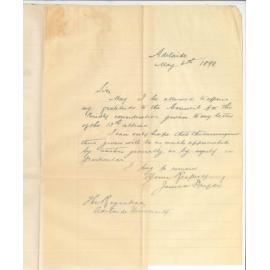 Adelaide
May 6th 1890
Sir
May I be allowed to express
my gratitude to the Council for the
kindly consideration given to my letter
of the 15th ultimo
I can only hope that the
thus given will be as much appreciated
by generally as by myself in
particular
I beg to remain
Yours Respectfully
James
The Registrar
Adelaide University